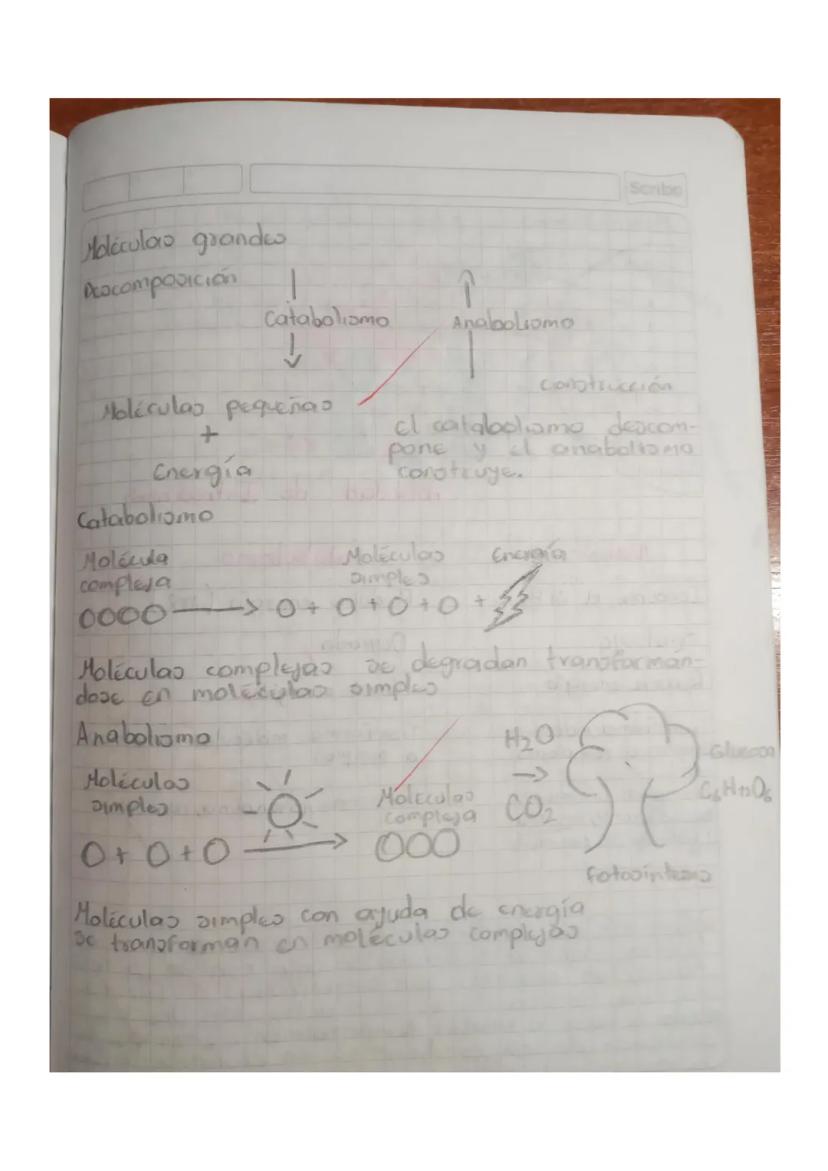 Scribe
Moléculas grandes
Descomposición
Catabolismo
Anabolismo
Construcción
Moléculas pequeñas
+
Energía
El catabolismo descom-
pone y el anabolismo
construye.
Catabolismo
Molécula
compleja
Moléculas
simples
Energía
OOOO → O + O + O + O +
Moléculas complejas se degradan transforman-
dose en moléculas simples
Anabolismo
Moléculas
simples
Moléculas
compleja
O + O + O → OOO
H2O
→
CO2
Glucosa
C6H12O6
Fotosíntesis
Moléculas simples con ayuda de energía
se transforman en moléculas complejas